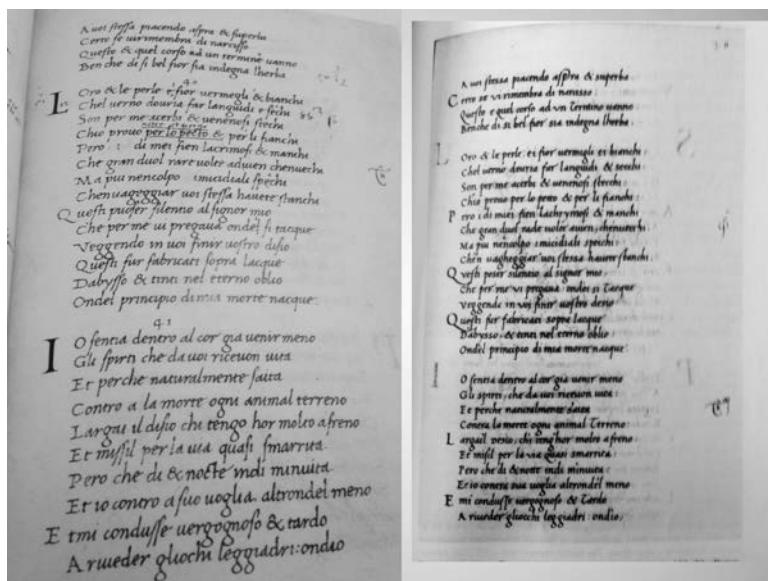 A voi stessa piacendo aspra & superba
Certo se vi rimembra di narcisso
Questo & quel corso ad un termine vanno
Ben che di si bel fior sia indegna lherba
L Oro & le perle e fior vermegli & bianchi
Chel verno douria far languidi e sechi
Son per me acerbi & venenosi stechi
Chio prouo per lo pecto & per li fianchi
Pero i di mei fien lacrimosi & manchi
Che gran duol rare uolte aduien
Ma piu nencolpo i micidiali spechi
Chen uagheggiar uoi stessa hauete stanchi
Questi puoser silentio al signor mio
Che per me ui pregaua ondel si tacque
Veggendo in uoi finir uostro disio
Questi fur fabricati sopra lacque
Dabysso & tinti nel eterno oblio
Ondel principio di mia morte nacque
41
I O sentia dentro al cor gia uenir meno
Gli spirti che da uoi riceuon uita
Et perche naturalmente saita
Contro a la morte ogni animal terreno
Largai il disio chi tengo hor molto afreno
Et missil per la uia quasi smarrita
Pero che di & nocte indi minuita
Et io contro a suo uoglia altrondel meno
E tmi condusse uergognoso & tardo
A riueder gliochi leggiadri: ondio
A voi stessa piacendo aspra & superba
Certo se vi rimembra di narcisso
Questo e quel corso ad vn Termino vanno
Benche di si bel fior sia indegna lherba
L Oro & le perle: ei fior vermigli ei bianchi
Chel verno douria far languidi & secchi
Son per me acerbi & uenenosi stecchi
Chio prouo per lo petto & per li fianchi
Pero i di miei fien lachrymosi & manchi
Che gran duol rade volte auien,
Ma piu nencolpo i micidiali speichi
Chen vagheggiar voi stessa hauete stanchi
Questi poser silentio al signor mio
Che per me vi pregaua: ondei si Tacque
Veggendo in voi finir uostro desio
Questi fur fabricati sopra lacque
Dabysso, & tinti nel eterno oblio
Ondel principio di mia morte nacque
O sentia dentro al cor gia uenir meno
Gli spirti, che da voi riceuon uita
Et perche naturalmente saita
Contra la morte ogni animal Terreno
Largail desio, chi teng hor molto afreno
Et misil per la via quasi smarrita
Pero che di & notte indi minuita
Et io contra sua voglia altrondel meno
E mi condusse vergognoso & Tardo
A riueder gliocchi leggiadri: ondio